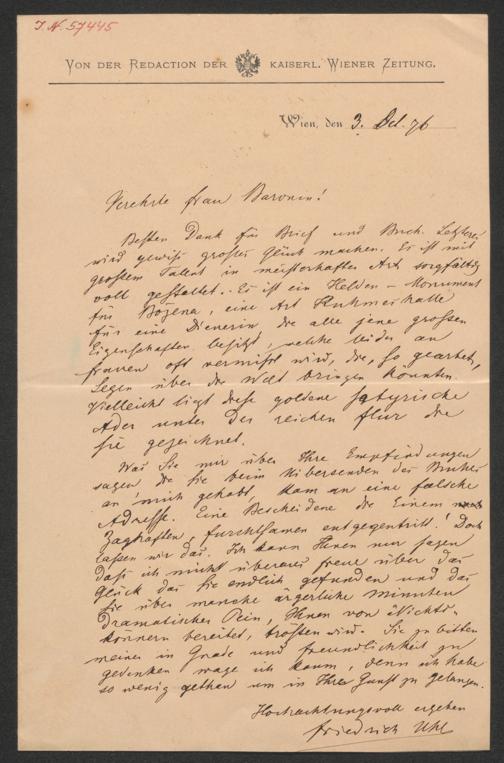 J. N. 57445
VON DER REDACTION DER KAISERL. WIENER ZEITUNG.
Wien, den 3. Dec. 76
Verehrte Frau Baronin!
Besten Dank für Brief und Buch. Letzteres
wird gewiß großes Glück machen. Es ist mit
großem Talent in meisterhafter Art, sorgfältig
voll gestaltet. Es ist ein Helden-Monument
für Bozena, eine Art Ruhmeshalle
für eine Dienerin, die alle jene großen
Eigenschaften besitzt, welche leider an
Frauen oft vermißt wird, die, so geartet,
Segen über die Welt bringen könnten.
Vielleicht liegt diese goldene satyrische
Ader unter der reichen Flur die
Sie gezeichnet.
Was Sie mir über Ihre Empfindungen
sagen die Sie beim Uibersenden des Buches
an mich gehabt, kam an eine falsche
Adresse. Eine Bescheidene die Einem
Zaghaften, furchtsamen entgegentritt! Doch
lassen wir das. Ich kann Ihnen nur sagen
daß ich mich überaus freue über das
Glück das Sie endlich gefunden und das
Sie über manche ärgerliche Minuten
dramatischer Pein, Ihnen von Nichts-
könnern bereitet, trösten wird. Sie zu bitten
meiner in Gnade und Freundlichkeit zu
gedenken wage ich kaum, denn ich habe
so wenig gethan um in Ihre Gunst zu gelangen.
Hochachtungsvoll ergeben
Friedrich Uhl